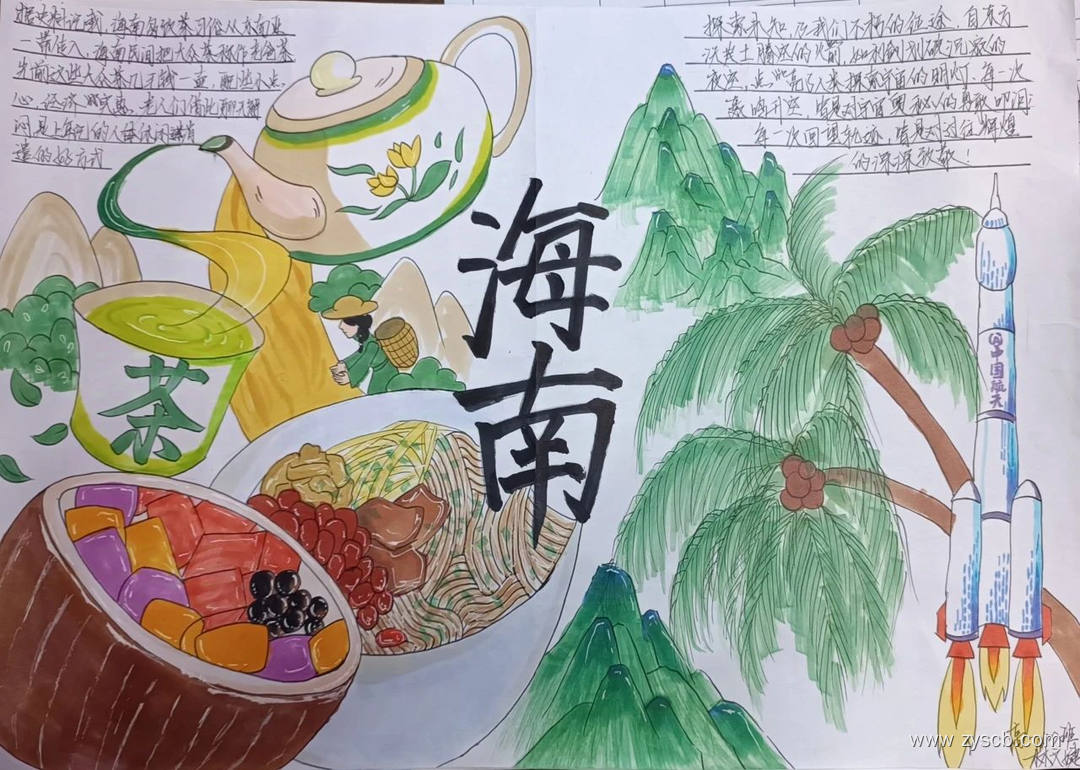 据史料记载，海南每饮茶习俗从东南亚
一带传入，海南民间把大众茶称作老爸茶
先前这些大众茶几毛钱一壶，配些小点
心，经济实惠，老人们借此聊天解
闷
遣的好方式
海南
茶
探索未知，乃我们不朽的征途，自东方
沃土腾空的火箭，如利剑划破沉寂的
夜空，点亮了人类探索宇宙的明灯，每一次
轰鸣升空，皆是对宇宙奥秘的勇敢叩问
每一次回望轨迹，皆是对过往辉煌
的深深致敬！
中国航天
www.zyscb.com